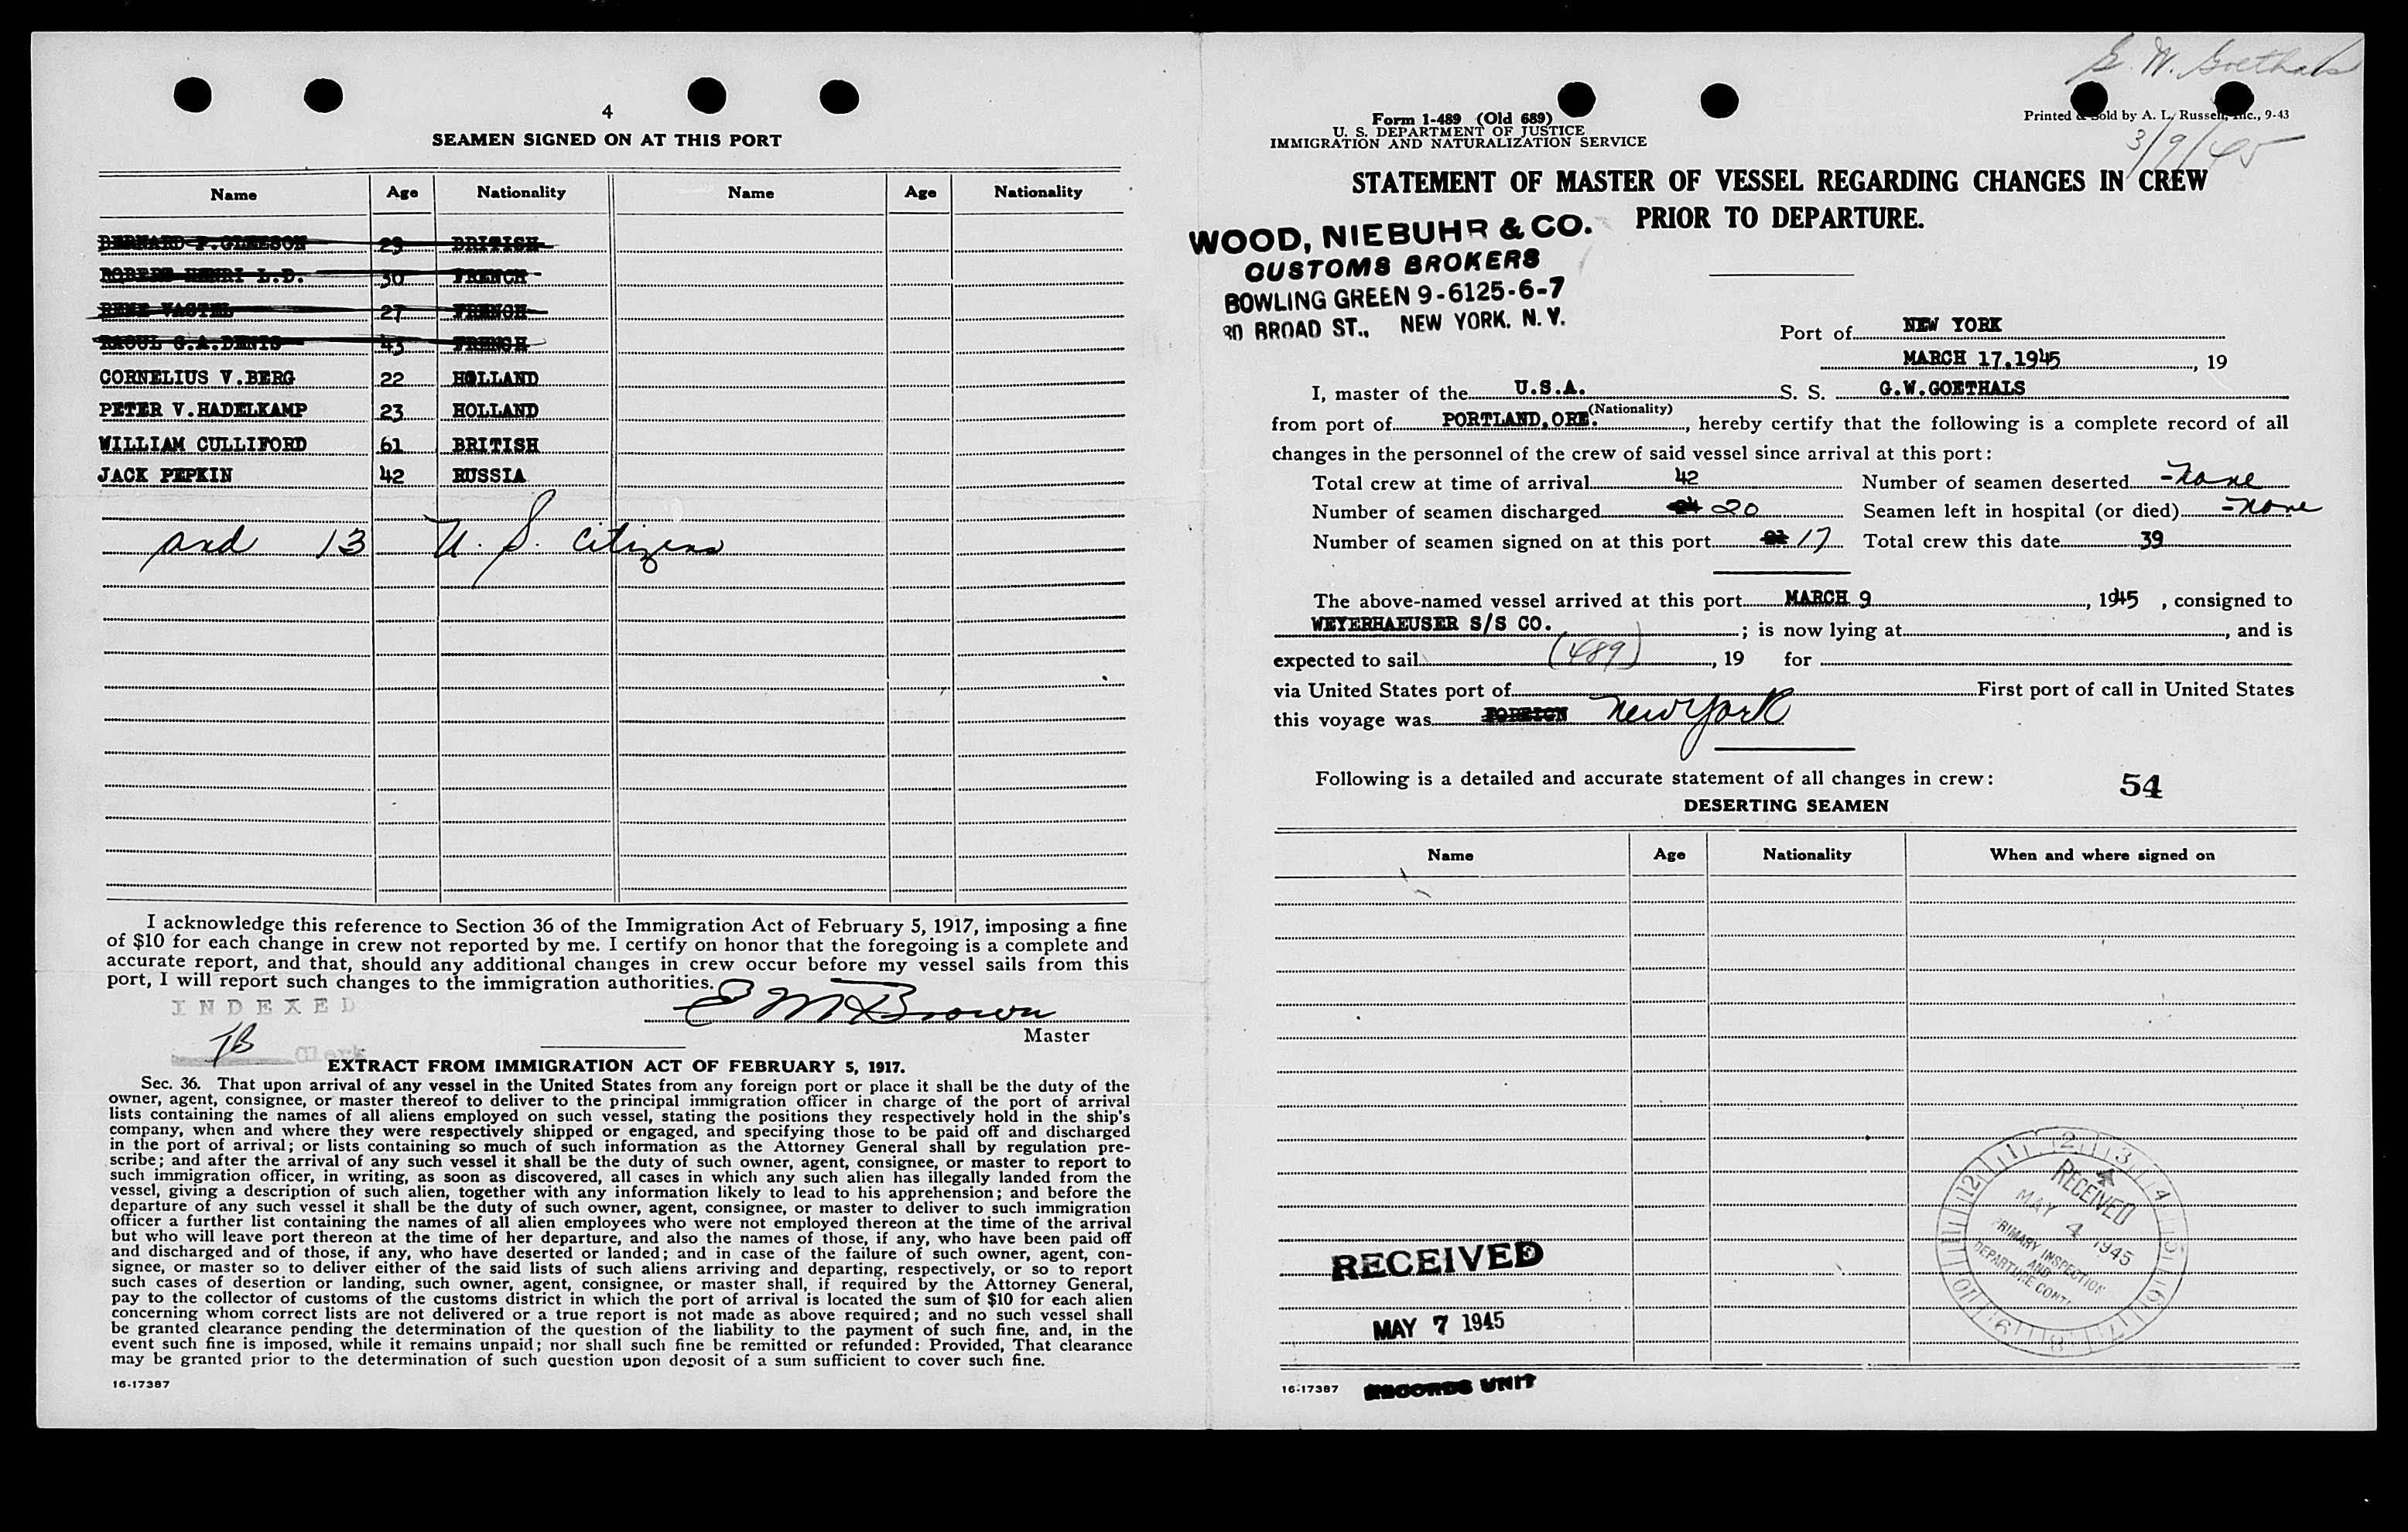 4
SEAMEN SIGNED ON AT THIS PORT
Name Age Nationality Name Age Nationality
BERNARD P.GLEESON 29 BRITISH
ROBERT HENRI L.D. 30 FRENCH
RENE VASTEL 27 FRENCH
RAOUL G.A.DENIS 43 FRENCH
CORNELIUS V.BERG 22 HOLLAND
PETER V.HADELKAMP 23 HOLLAND
WILLIAM CULLIFORD 61 BRITISH
JACK PEPKIN 42 RUSSIA
and 13 U. S. citizens
I acknowledge this reference to Section 36 of the Immigration Act of February 5, 1917, imposing a fine
of $10 for each change in crew not reported by me. I certify on honor that the foregoing is a complete and
accurate report, and that, should any additional changes in crew occur before my vessel sails from this
port, I will report such changes to the immigration authorities.
E M Brown
Master
INDEXED
JB Clerk
EXTRACT FROM IMMIGRATION ACT OF FEBRUARY 5, 1917.
Sec. 36. That upon arrival of any vessel in the United States from any foreign port or place it shall be the duty of the
owner, agent, consignee, or master thereof to deliver to the principal immigration officer in charge of the port of arrival
lists containing the names of all aliens employed on such vessel, stating the positions they respectively hold in the ship's
company, when and where they were respectively shipped or engaged, and specifying those to be paid off and discharged
in the port of arrival; or lists containing so much of such information as the Attorney General shall by regulation pre-
scribe; and after the arrival of any such vessel it shall be the duty of such owner, agent, consignee, or master to report to
such immigration officer, in writing, as soon as discovered, all cases in which any such alien has illegally landed from the
vessel, giving a description of such alien, together with any information likely to lead to his apprehension; and before the
departure of any such vessel it shall be the duty of such owner, agent, consignee, or master to deliver to such immigration
officer a further list containing the names of all alien employees who were not employed thereon at the time of the arrival
but who will leave port thereon at the time of her departure, and also the names of those, if any, who have been paid off
and discharged and of those, if any, who have deserted or landed; and in case of the failure of such owner, agent, con-
signee, or master so to deliver either of the said lists of such aliens arriving and departing, respectively, or so to report
such cases of desertion or landing, such owner, agent, consignee, or master shall, if required by the Attorney General,
pay to the collector of customs of the customs district in which the port of arrival is located the sum of $10 for each alien
concerning whom correct lists are not delivered or a true report is not made as above required; and no such vessel shall
be granted clearance pending the determination of the question of the liability to the payment of such fine, and, in the
event such fine is imposed, while it remains unpaid; nor shall such fine be remitted or refunded: Provided, That clearance
may be granted prior to the determination of such question upon deposit of a sum sufficient to cover such fine.
16-17387
G. W. Goethals
Form 1-489 (Old 689)
U. S. DEPARTMENT OF JUSTICE
IMMIGRATION AND NATURALIZATION SERVICE
Printed & Sold by A. L. Russell, Inc., 9-43
3/9/45
STATEMENT OF MASTER OF VESSEL REGARDING CHANGES IN CREW
PRIOR TO DEPARTURE.
WOOD, NIEBUHR & CO.
CUSTOMS BROKERS
BOWLING GREEN 9-6125-6-7
80 BROAD ST., NEW YORK. N. Y.
Port of NEW YORK
MARCH 17,1945, 19
I, master of the U.S.A. S. S. G.W.GOETHALS
(Nationality)
from port of PORTLAND,ORE., hereby certify that the following is a complete record of all
changes in the personnel of the crew of said vessel since arrival at this port:
Total crew at time of arrival 42 Number of seamen deserted -none
Number of seamen discharged 24 20 Seamen left in hospital (or died) -none
Number of seamen signed on at this port 17 Total crew this date 39
The above-named vessel arrived at this port MARCH 9, 1945, consigned to
WEYERHAEUSER S/S CO.; is now lying at, and is
expected to sail (489), 19 for
via United States port of First port of call in United States
this voyage was FOREIGN New York
Following is a detailed and accurate statement of all changes in crew:
54
DESERTING SEAMEN
Name Age Nationality When and where signed on
12 1 2 3 4 5 6 7 8 9 10 11
RECEIVED
MAY 4 1945
PRIMARY INSPECTION
AND
DEPARTURE CONT.
RECEIVED
MAY 7 1945
RECORDS UNIT
16-17387